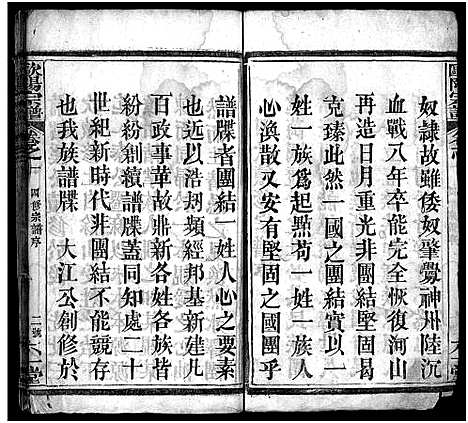 奴隸故雖倭奴肇釁神州陸沉
血戰八年卒能完全恢復河山
再造日月重光非團結堅固曷
克臻此然一國之團結實以一
姓一族爲起點苟一姓一族人
心渙散又安有堅固之國團乎
譜牒者團結一姓人心之要素
也近以浩刼頻經邦基新建凡
百政事革故鼎新各姓各族皆
紛紛創續譜牒蓋同知處二十
世紀新時代非團結不能競存
也我族譜牒 大江公創修於
歐陽宗譜
四修宗譜序
二號